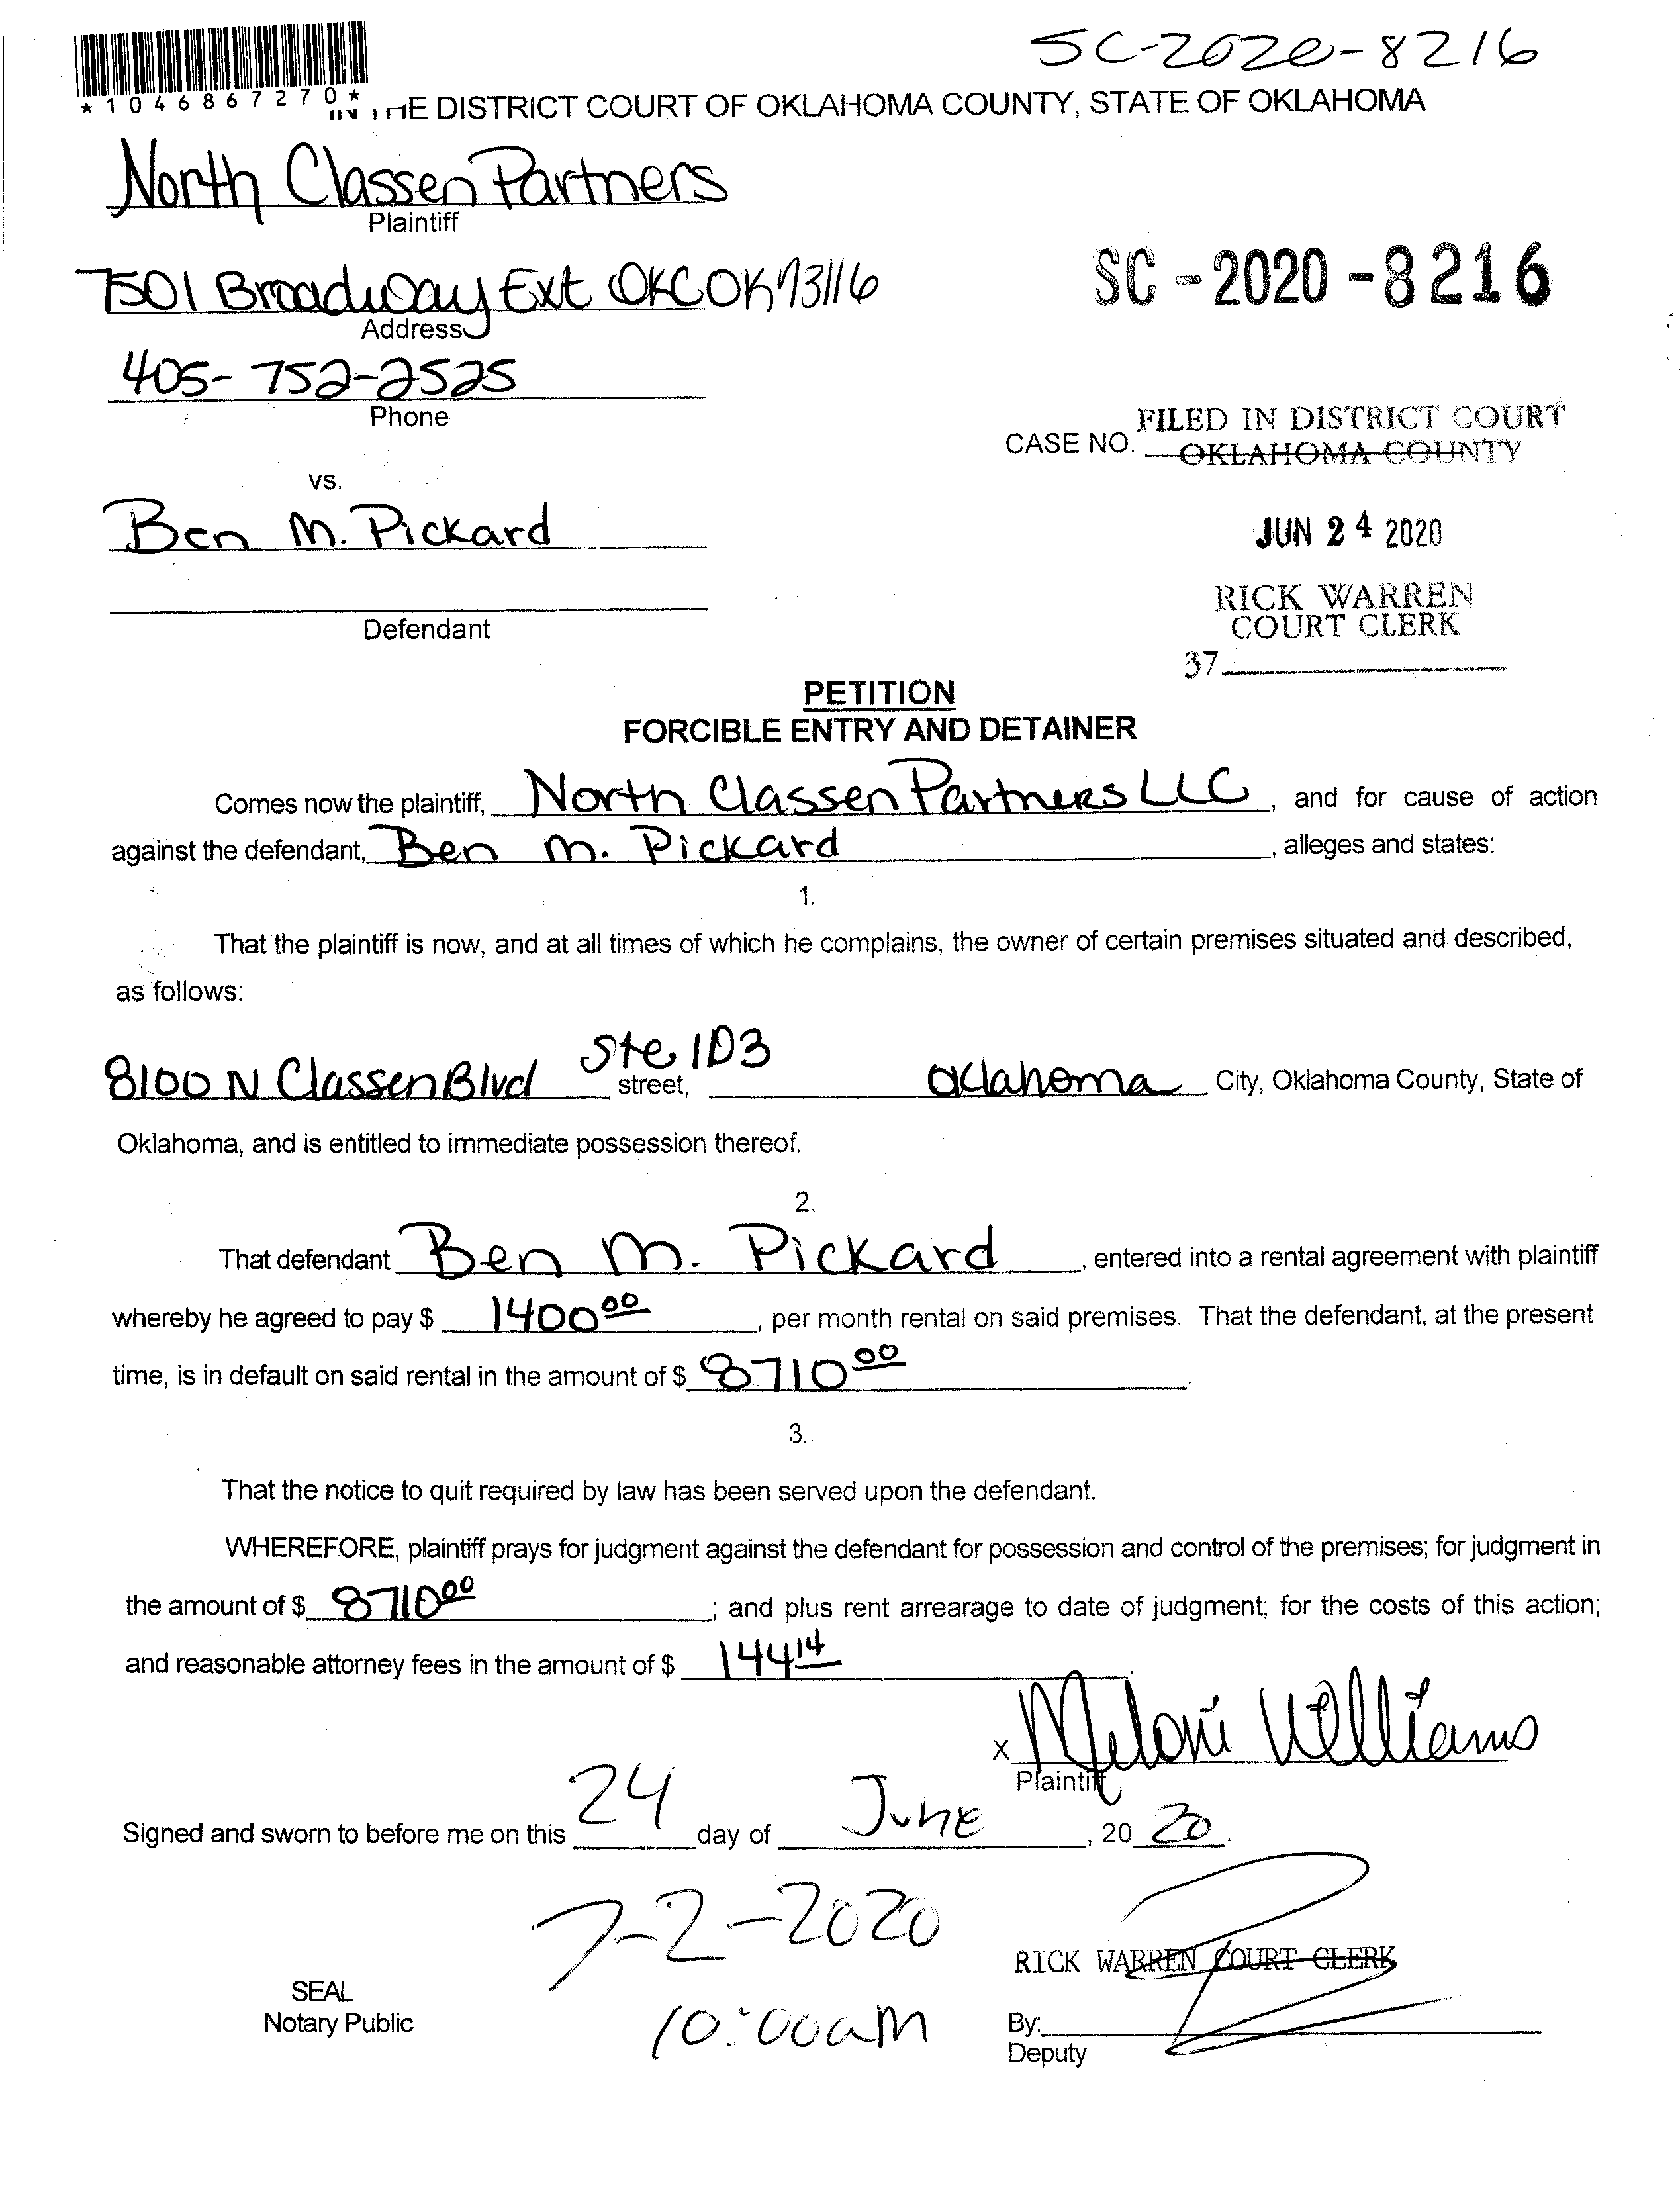 SC-2020-8216
*1046867270*
IN THE DISTRICT COURT OF OKLAHOMA COUNTY, STATE OF OKLAHOMA
North Classen Partners
Plaintiff
7501 Broadway Ext OKC OK 73116
Address
SC-2020-8216
405-752-2525
Phone
FILED IN DISTRICT COURT
CASE NO. OKLAHOMA COUNTY
vs.
Ben M. Pickard
JUN 24 2020
RICK WARREN
COURT CLERK
Defendant
37
PETITION
FORCIBLE ENTRY AND DETAINER
Comes now the plaintiff, North Classen Partners LLC, and for cause of action
against the defendant, Ben M. Pickard, alleges and states:
1.
That the plaintiff is now, and at all times of which he complains, the owner of certain premises situated and described,
as follows:
8100 N Classen Blvd street, Ste 1D3 Oklahoma City, Oklahoma County, State of
Oklahoma, and is entitled to immediate possession thereof.
2.
That defendant Ben M. Pickard, entered into a rental agreement with plaintiff
whereby he agreed to pay $ 1400 00, per month rental on said premises. That the defendant, at the present
time, is in default on said rental in the amount of $ 8710 00.
3.
That the notice to quit required by law has been served upon the defendant.
WHEREFORE, plaintiff prays for judgment against the defendant for possession and control of the premises; for judgment in
the amount of $ 8710 00; and plus rent arrearage to date of judgment; for the costs of this action;
and reasonable attorney fees in the amount of $ 144 14
x Meloni Williams
Plaintiff
Signed and sworn to before me on this 24 day of June, 20 20.
7-2-2020
RICK WARREN COURT CLERK
SEAL
Notary Public
10:00am
By:
Deputy